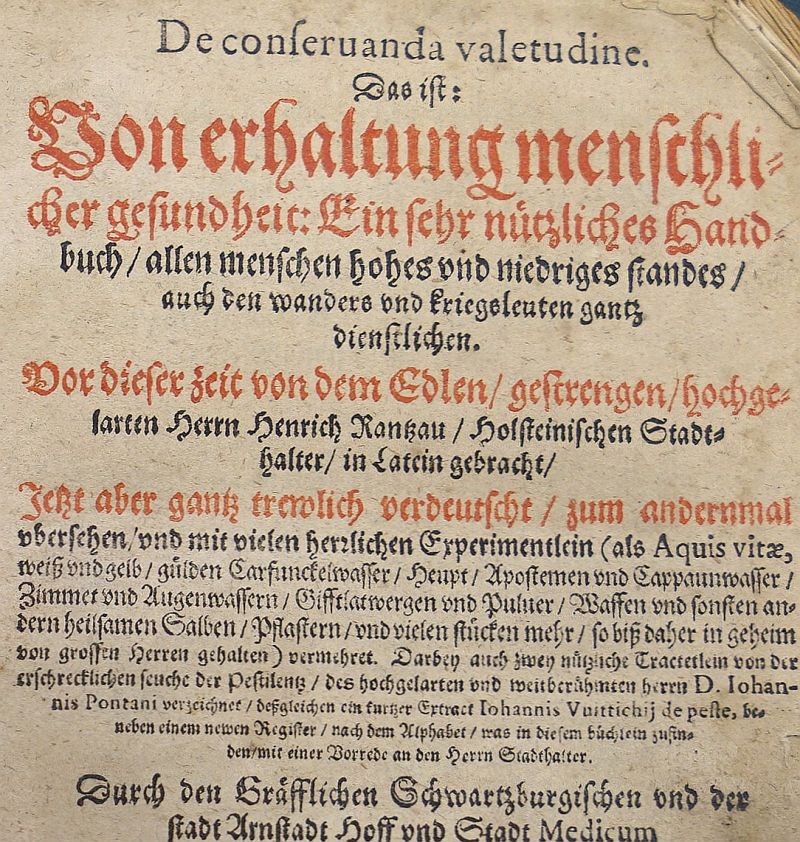 De conſeruanda valetudine.
Das iſt:
Von erhaltung menſchli-
cher geſundheit: Ein ſehr nützliches Hand-
buch / allen menſchen hohes vnd niedriges ſtandes /
auch den wanders vnd kriegsleuten gantz
dienſtlichen.
Vor dieſer zeit von dem Edlen / geſtrengen / hochge-
larten Herrn Henrich Rantzau / Holſteiniſchen Stadt-
halter / in Latein gebracht /
Jetzt aber gantz trewlich verdeutſcht / zum andernmal
vberſehen / vnd mit vielen herrlichen Experimentlein (als Aquis vitæ,
weiß vnd gelb / gülden Carfunckelwaſſer / Heupt / Apoſtemen vnd Cappaunwaſſer /
Zimmet vnd Augenwaſſern / Gifftlatwergen vnd Puluer / Waffen vnd ſonſten an-
dern heilſamen Salben / Pflaſtern / vnd vielen ſtücken mehr / ſo biß daher in geheim
von groſſen Herren gehalten) vermehret. Darbey auch zwey nützliche Tractetlein von der
erſchrecklichen ſeuche der Peſtilentz / des hochgelarten vnd weitberühmten herrn D. Iohan-
nis Pontani verzeichnet / deßgleichen ein kurtzer Extract Iohannis VVittichij de peſte, be-
neben einem newen Regiſter / nach dem Alphabet / was in dieſem büchlein zufin-
den / mit einer Vorrede an den Herrn Stadthalter.
Durch den Gräfflichen Schwartzburgiſchen vnd der
ſtadt Arnſtadt Hoff vnd Stadt Medicum